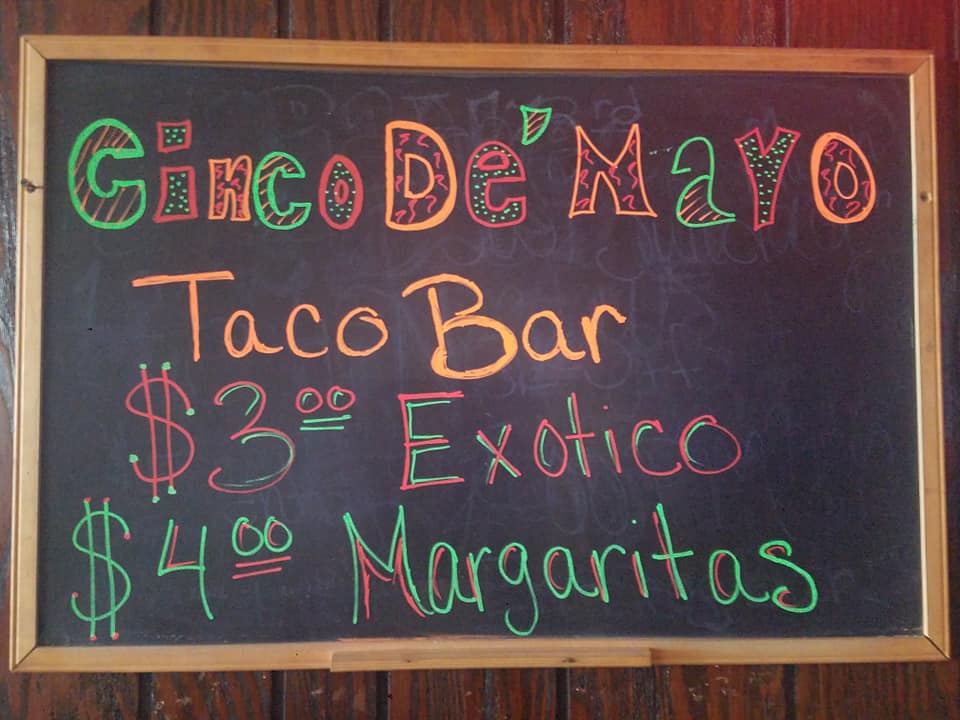 Cinco De' Mayo
Taco Bar
$3.00 Exotico
$4.00 Margaritas